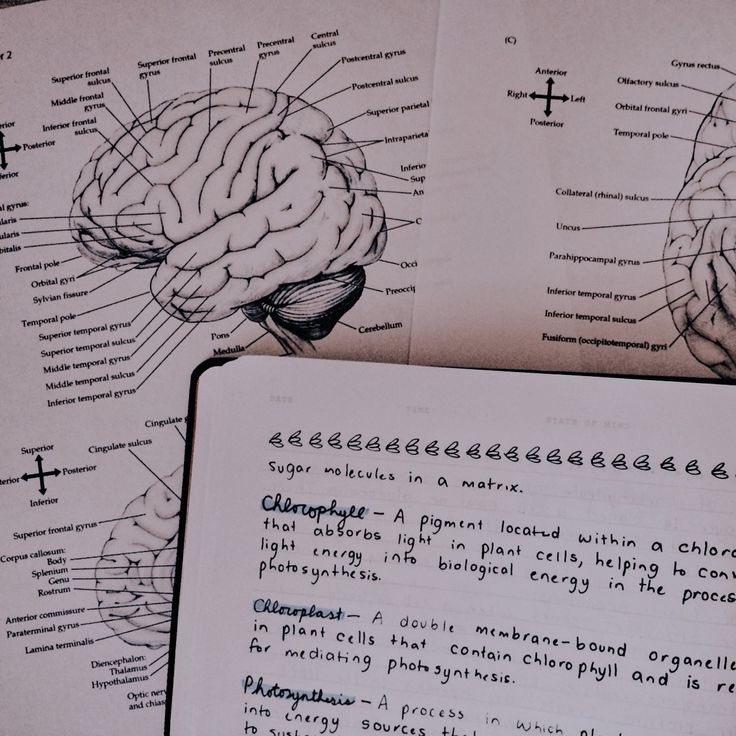 r 2
Superior frontal
sulcus
Superior frontal
gyrus
Precentral
sulcus
Precentral
gyrus
Central
sulcus
Postcentral gyrus
Postcentral sulcus
Superior parietal
Intraparieta
Inferio
Sup
An
C
Occi
Preoccip
Cerebellum
Middle frontal
gyrus
Inferior frontal
sulcus
erior
Posterior
ferior
al gyrus:
ularis
ularis
bitalis
Frontal pole
Orbital gyri
Sylvian fissure
Temporal pole
Superior temporal gyrus
Superior temporal sulcus
Middle temporal gyrus
Middle temporal sulcus
Inferior temporal gyrus
Pons
Medulla
(C)
Anterior
Right
Left
Posterior
Gyrus rectus
Olfactory sulcus
Orbital frontal gyri
Temporal pole
Collateral (rhinal) sulcus
Uncus
Parahippocampal gyrus
Inferior temporal gyrus
Inferior temporal sulcus
Fusiform (occipitotemporal) gyri
Superior
terior
Posterior
Inferior
Cingulate g
Cingulate sulcus
Superior frontal gyrus
Corpus callosum:
Body
Splenium
Genu
Rostrum
Anterior commissure
Paraterminal gyrus
Lamina terminalis
Diencephalon:
Thalamus
Hypothalamus
Optic nerv
and chias
Sugar molecules in a matrix.
Chlorophyll – A pigment located within a chloro
that absorbs light in plant cells, helping to conv
light energy into biological energy in the proces
photosynthesis.
Chloroplast – A double membrane-bound organelle
in plant cells that contain chlorophyll and is re
for mediating photosynthesis.
Photosynthesis – A process in which pl
into energy sources th
to sus